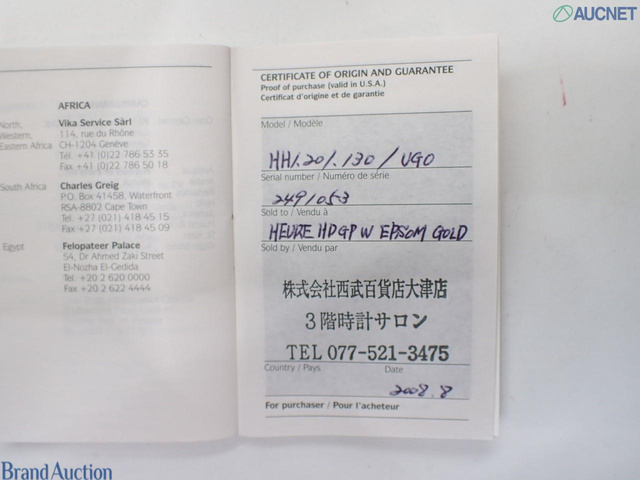 AUCNET
AFRICA
North,
Western,
Eastern Africa
Vika Service Sàrl
114, rue du Rhône
CH-1204 Genève
Tél. +41 (0)22 786 53 35
Fax +41 (0)22 786 50 18
South Africa
Charles Greig
P.O. Box 41458, Waterfront
RSA-8802 Cape Town
Tel. +27 (021) 418 45 15
Fax +27 (021) 418 45 09
Egypt
Felopateer Palace
54, Dr Ahmed Zaki Street
El-Nozha El-Gedida
Tel. +20 2 620 0000
Fax +20 2 622 4444
CERTIFICATE OF ORIGIN AND GUARANTEE
Proof of purchase (valid in U.S.A.)
Certificat d'origine et de garantie
Model / Modèle
HH1.201.130/UGO
Serial number / Numéro de série
2491053
Sold to / Vendu à
HEURE HD GP W EPSOM GOLD
Sold by / Vendu par
株式会社西武百貨店大津店
3階時計サロン
TEL 077-521-3475
Country / Pays
Date
2008.8
For purchaser / Pour l'acheteur
Brand Auction